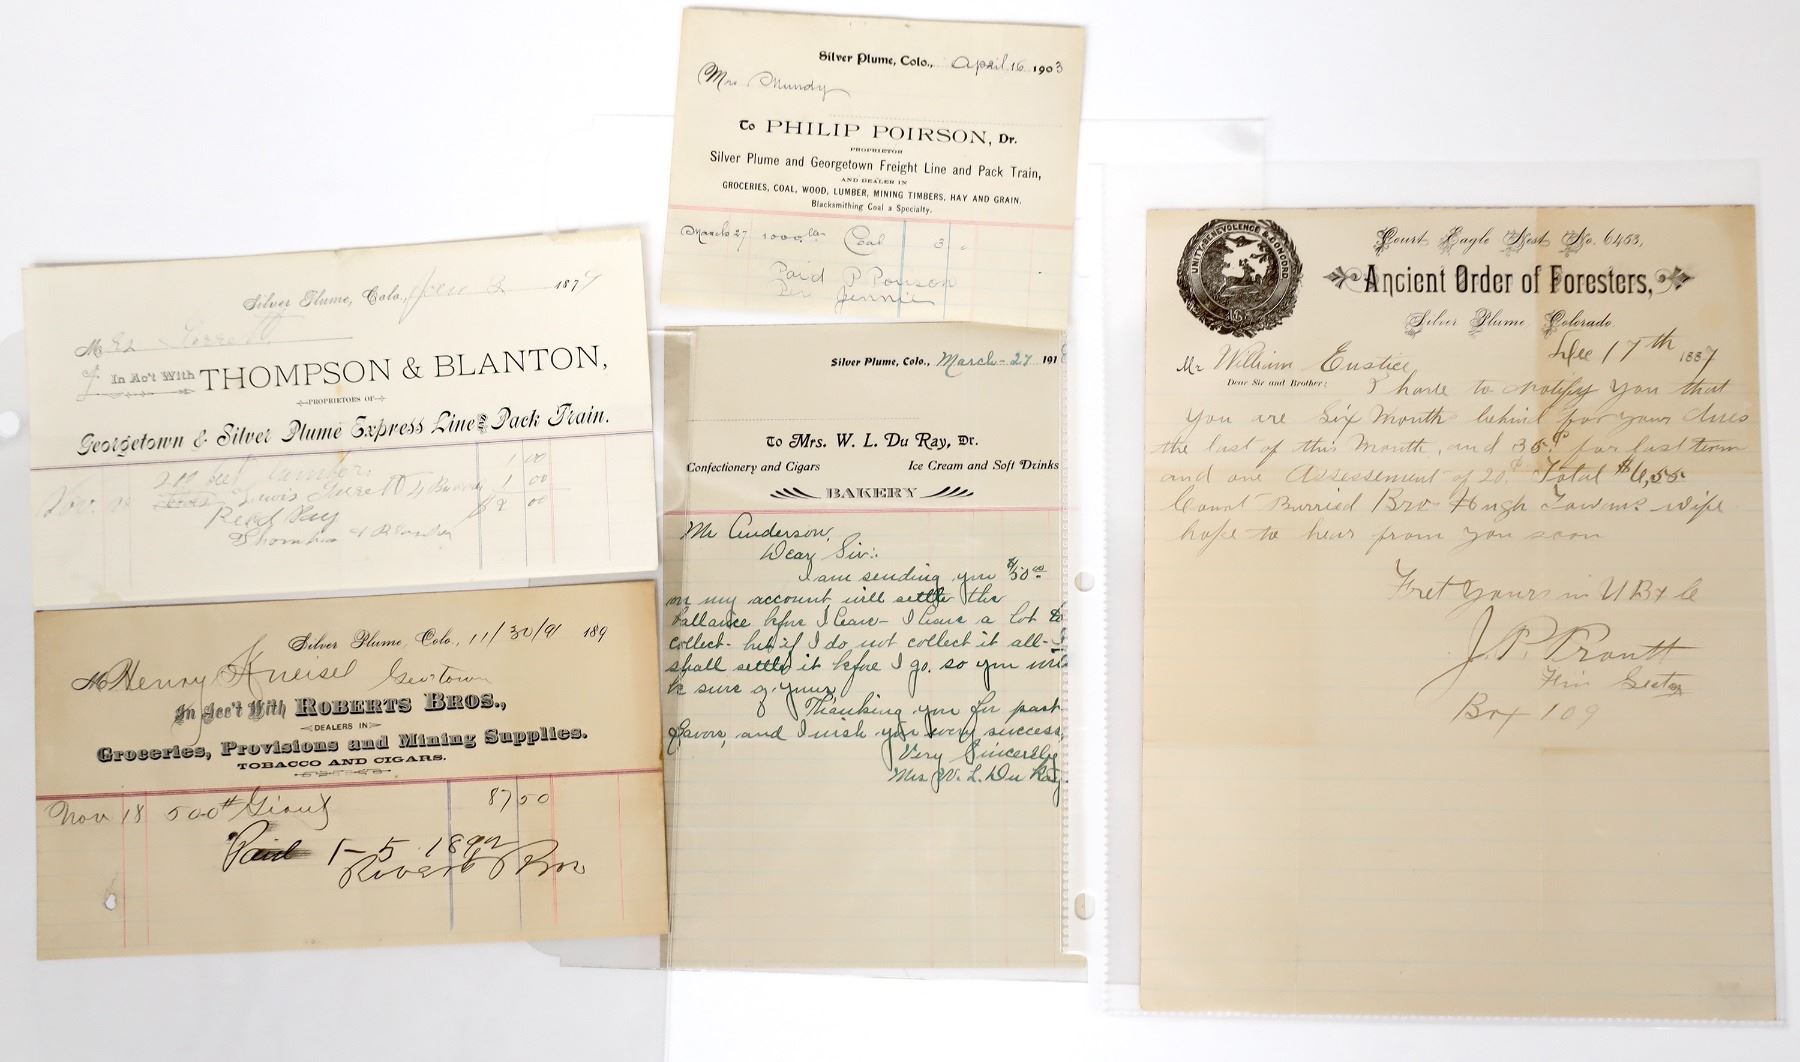 Silver Plume, Colo., Jan 2 1879
M Ed
In Ac't With THOMPSON & BLANTON,
PROPRIETORS OF
Georgetown & Silver Plume Express Line and Pack Train.
200 feet Lumber 1 00
Nov. 1 00
$2 00
Recd Pay
Thompson & Blanton
Silver Plume, Colo., 11/30/91 189
M Henry Kneisel Geotown
In Acc't With ROBERTS BROS.,
DEALERS IN
Groceries, Provisions and Mining Supplies.
TOBACCO AND CIGARS.
Nov 18 500# Giant 87 50
Paid 1-5 1892
Roberts Bros
Silver Plume, Colo., April 16 1903
Mrs Mundy
To PHILIP POIRSON, Dr.
PROPRIETOR
Silver Plume and Georgetown Freight Line and Pack Train,
AND DEALER IN
GROCERIES, COAL, WOOD, LUMBER, MINING TIMBERS, HAY AND GRAIN.
Blacksmithing Coal a Specialty.
March 27 1000 lbs Coal 3
Paid P Poirson
Per Jennie
Silver Plume, Colo., March - 27 191
To Mrs. W. L. Du Ray, Dr.
Confectionery and Cigars Ice Cream and Soft Drinks
BAKERY
Mr Anderson,
Dear Sir:
I am sending you $50.00
on my account, will settle the
ballance before I leave - I have a lot to
collect - but if I do not collect it all - I
shall settle it before I go. so you will
be sure of yours
Thanking you for past
favors, and I wish you every success,
Very Sincerely
Mrs W. L. Du Ray
UNITY BENEVOLENCE & CONCORD
Court Eagle Nest No. 6453,
Ancient Order of Foresters,
Silver Plume, Colorado.
Dec 17th 1887
Mr William Eustice
Dear Sir and Brother: I have to notify you that
you are Six Month behind for your dues
the last of this Month, and 35¢ for last term
and one Assessment of 20¢ Total $6,55
Court Burried Bro Hugh wife
hope to hear from you soon
Fret yours in U B & C
J. P. Proutt
Fin Sectry
Box 109